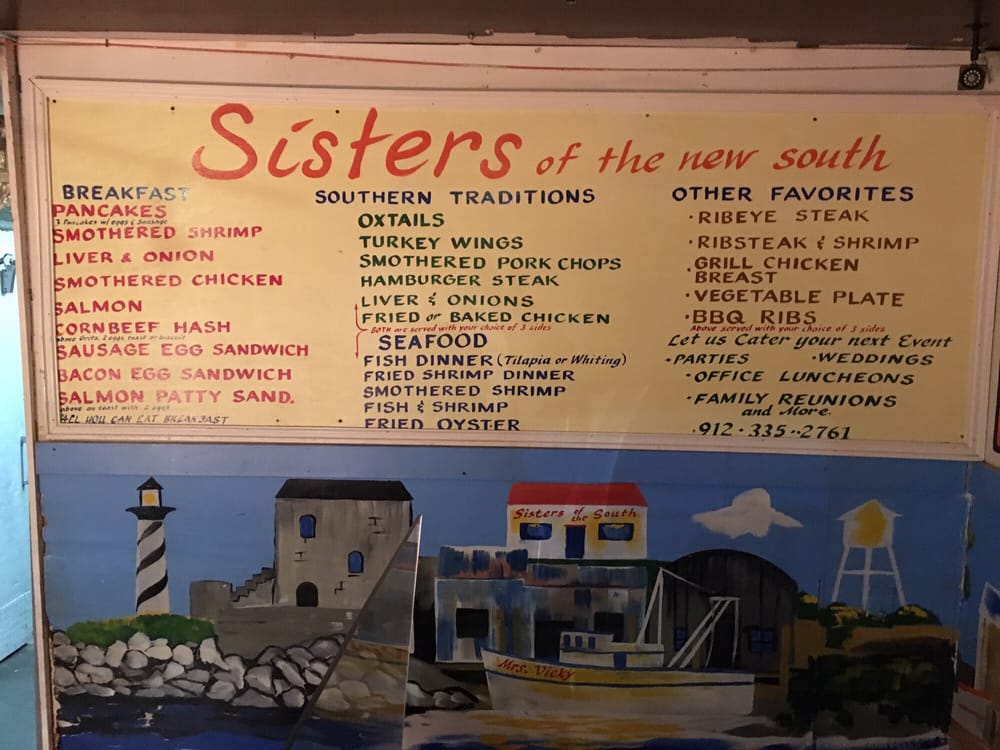 Sisters of the new south
BREAKFAST
PANCAKES
3 Pancakes w/ eggs & Sausage
SMOTHERED SHRIMP
LIVER & ONION
SMOTHERED CHICKEN
SALMON
CORNBEEF HASH
above Grits, 2 eggs toast or biscuit
SAUSAGE EGG SANDWICH
BACON EGG SANDWICH
SALMON PATTY SAND.
above on toast with 2 eggs
ALL YOU CAN EAT BREAKFAST
SOUTHERN TRADITIONS
OXTAILS
TURKEY WINGS
SMOTHERED PORK CHOPS
HAMBURGER STEAK
LIVER & ONIONS
FRIED or BAKED CHICKEN
BOTH are served with your choice of 3 sides
SEAFOOD
FISH DINNER (Tilapia or Whiting)
FRIED SHRIMP DINNER
SMOTHERED SHRIMP
FISH & SHRIMP
FRIED OYSTER
OTHER FAVORITES
· RIBEYE STEAK
· RIBSTEAK & SHRIMP
· GRILL CHICKEN
BREAST
· VEGETABLE PLATE
· BBQ RIBS
Above served with your choice of 3 sides
Let us Cater your next Event
· PARTIES · WEDDINGS
· OFFICE LUNCHEONS
· FAMILY REUNIONS
and More.
· 912 · 335 -- 2761
Sisters of the South
Mrs. Vicky